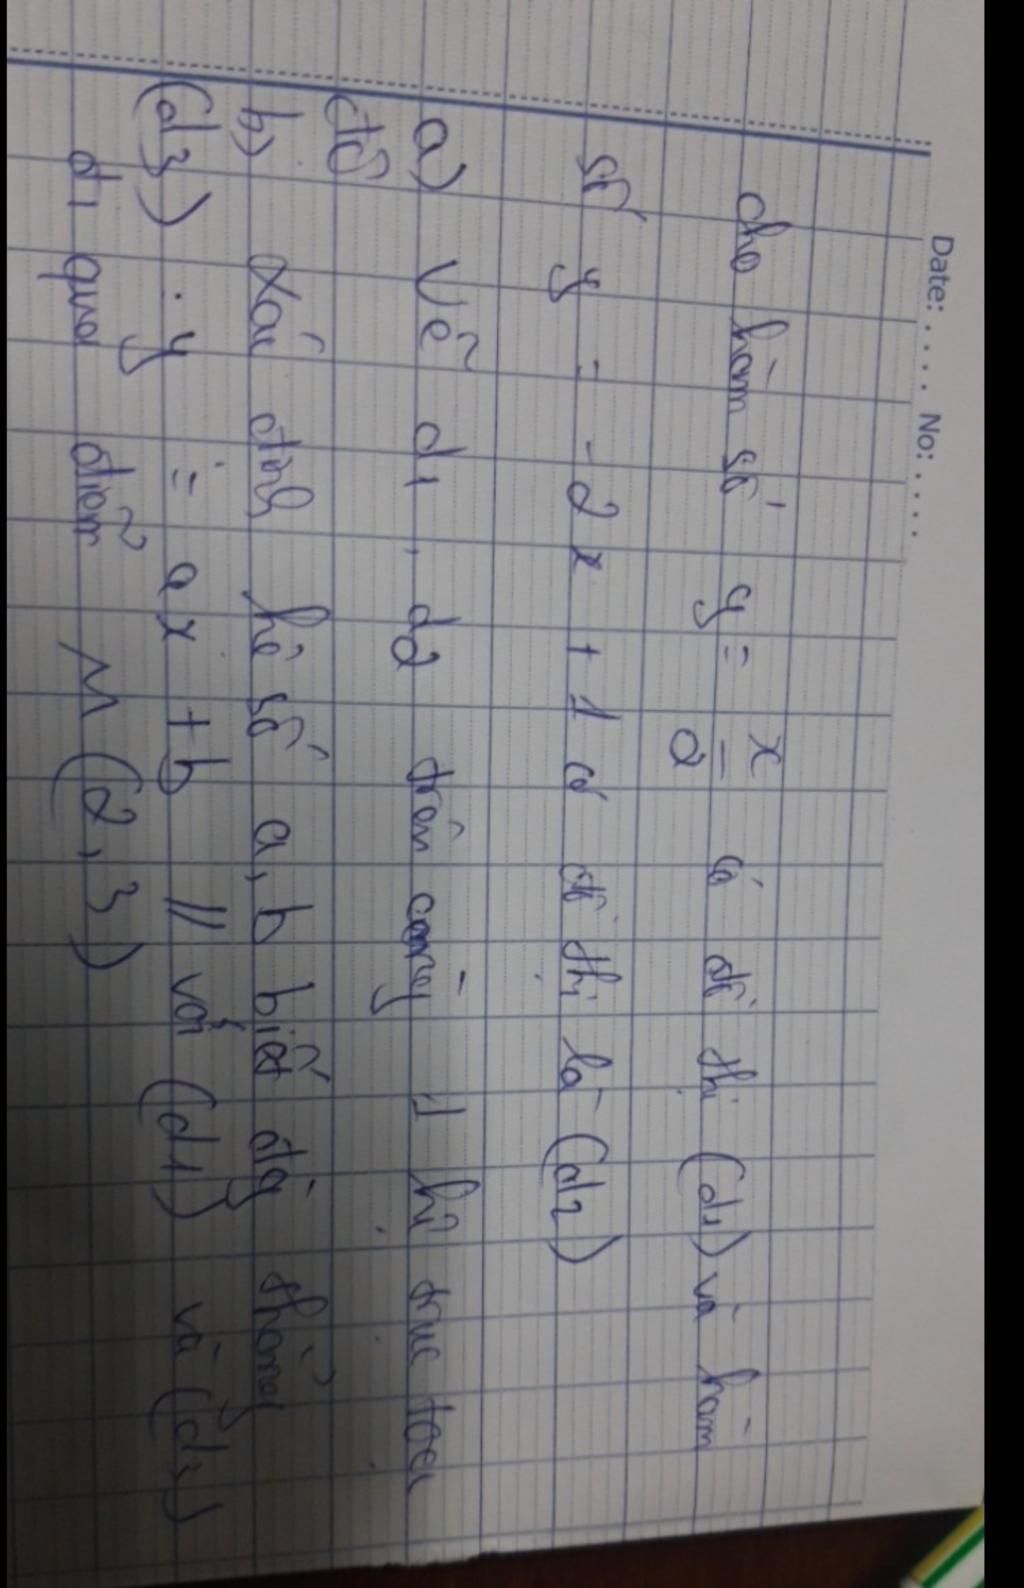 Date: ..... No: .....
cho hàm số y = x/2 có đồ thị (d1) và hàm
số y = -2x + 1 có đồ thị là (d2)
a) Vẽ d1, d2 trên cùng 1 hệ trục toạ
độ
b) Xác định hệ số a, b biết đg thẳng
(d3) : y = ax + b // với (d1) và (d3)
đi qua điểm M (2, 3)